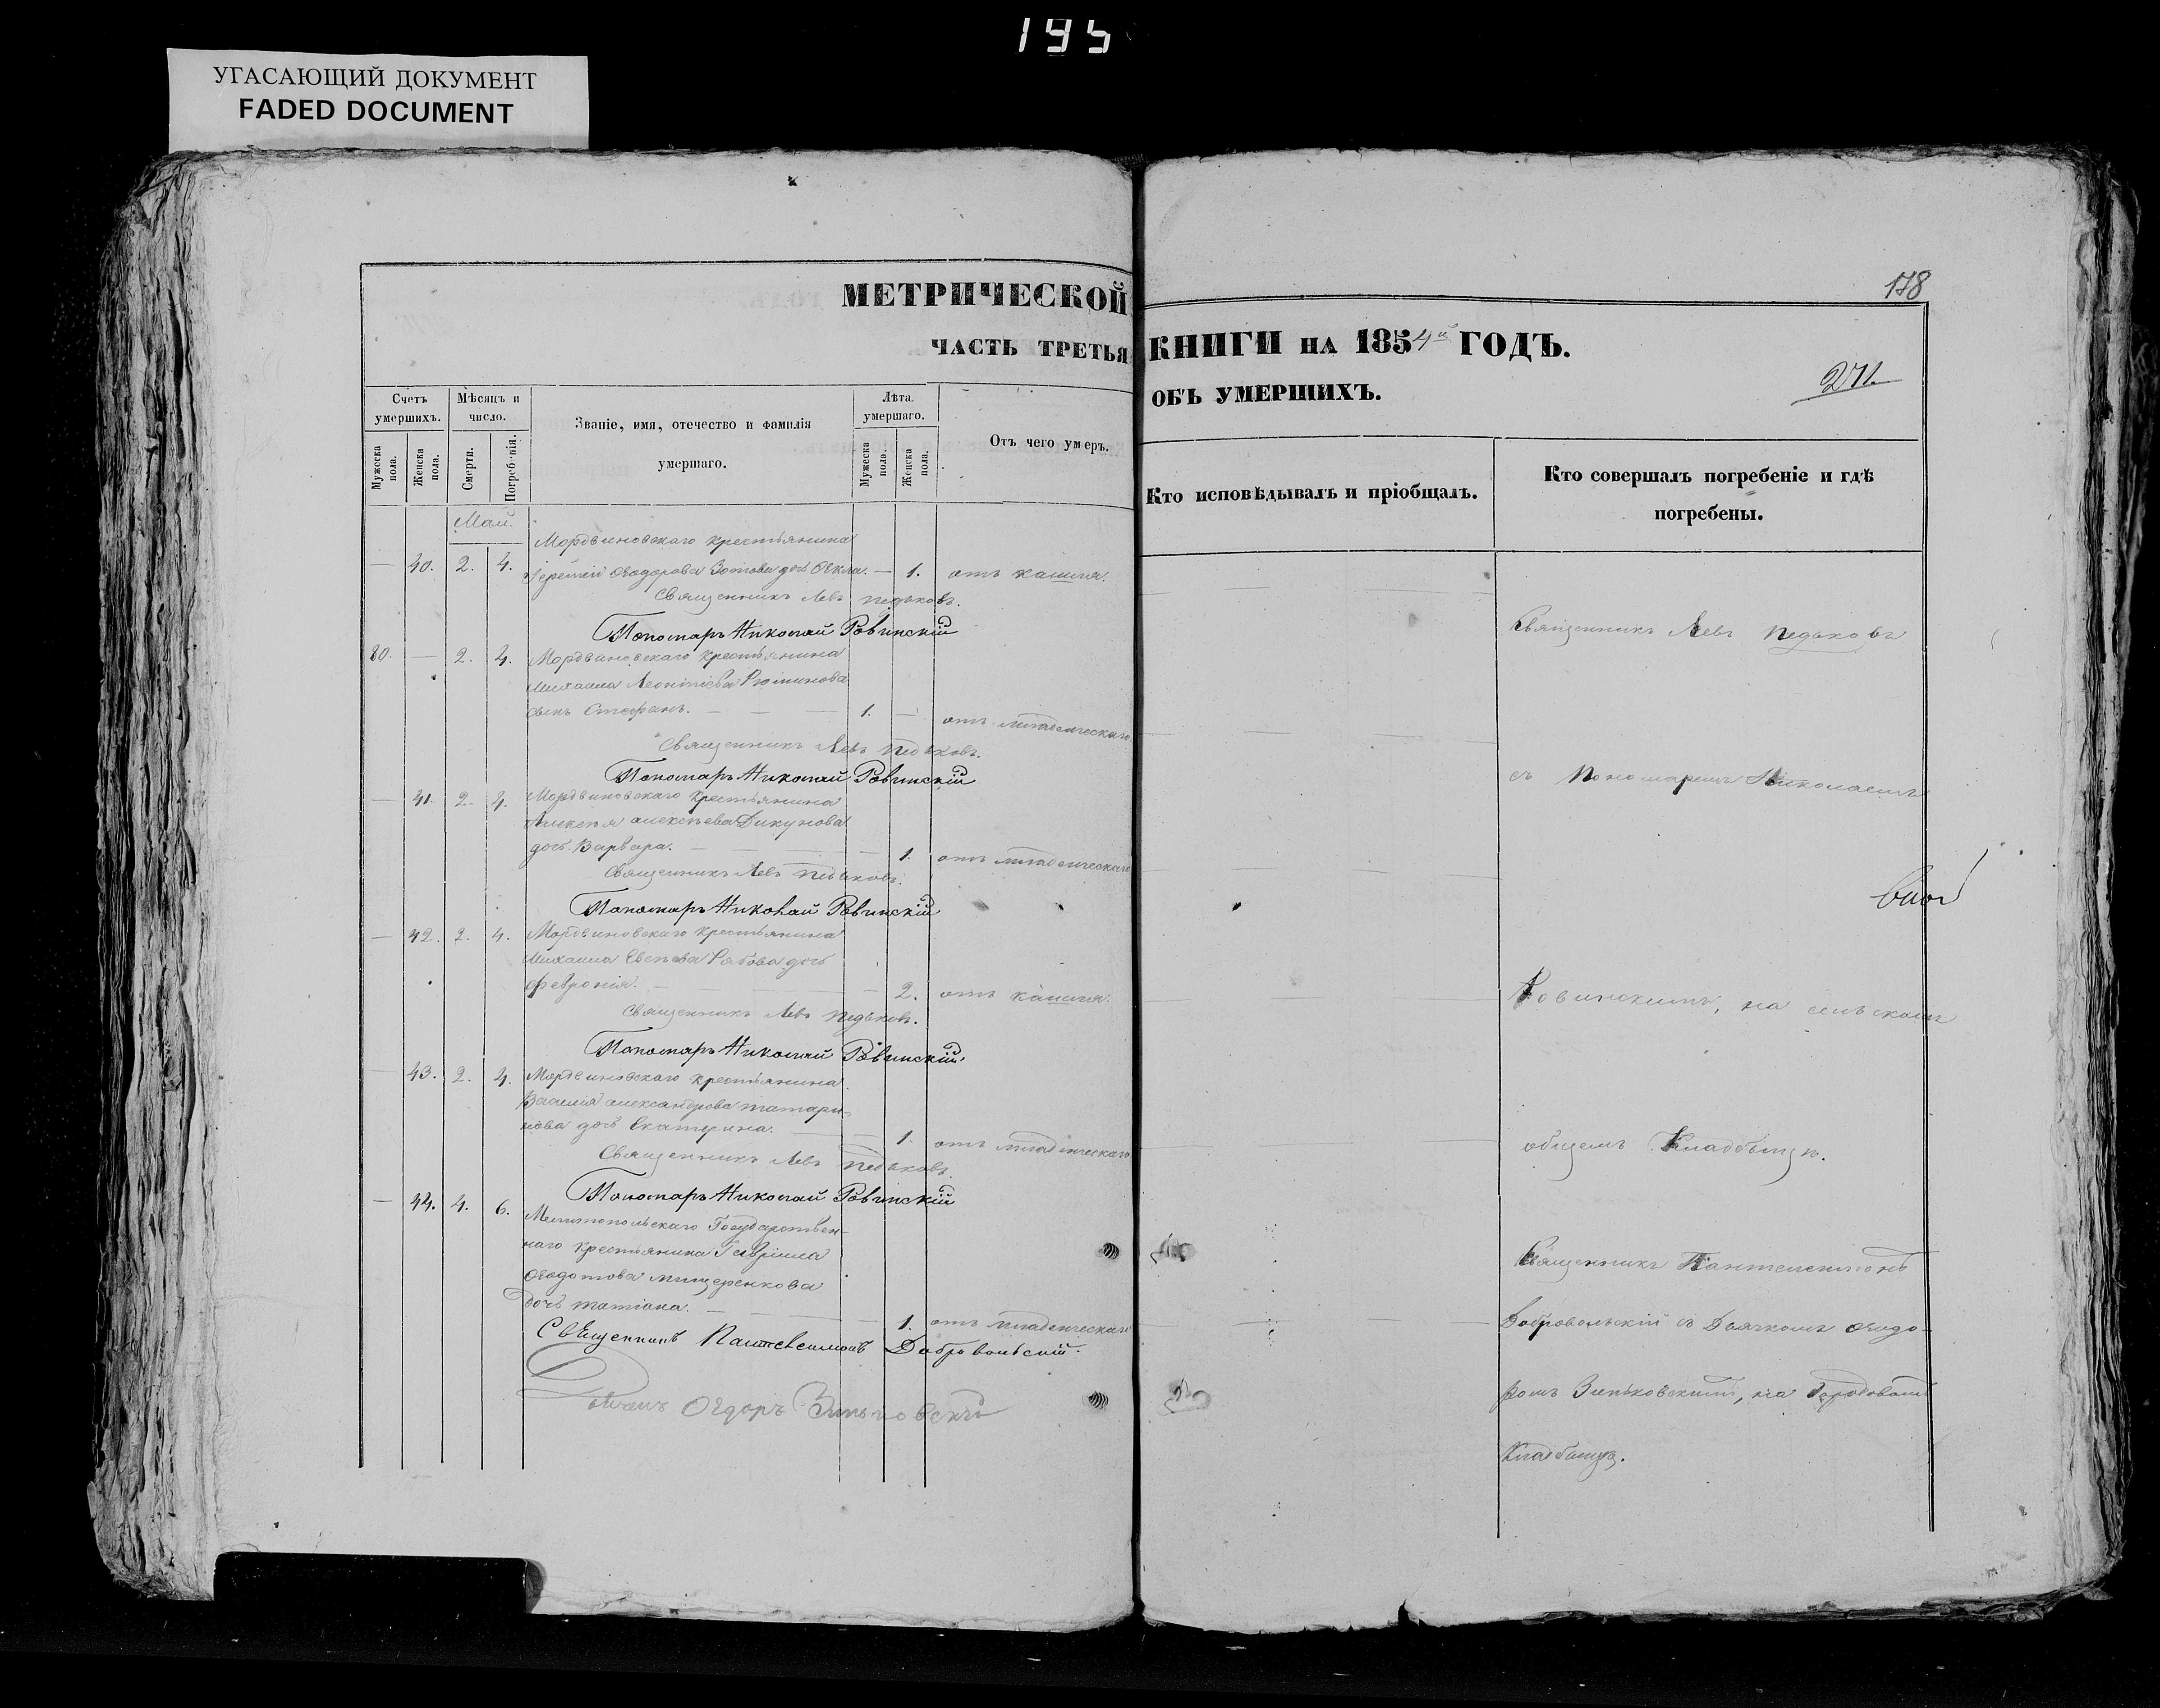 195
УГАСАЮЩИЙ ДОКУМЕНТ
FADED DOCUMENT
МЕТРИЧЕСКОЙ
ЧАСТЬ ТРЕТЬЯ
Счетъ умершихъ.
Мужеска пола.
Женска пола.
Мѣсяцъ и число.
Смерти.
Погребенія.
Званіе, имя, отечество и фамилія
умершаго.
Лѣта умершаго.
Мужеска пола.
Женска пола.
Отъ чего умеръ.
Май.
Мордвиновскаго крестьянина
— 40. 2. 4. Ѳеодорова Зотова дочь — 1. отъ кашля.
Священникъ Левъ Педьковъ.
Пономарь Николай Ровинскій
80. — 2. 4. Мордвиновскаго крестьянина
Михаила Леонтіева
сынъ Стефанъ. — — — 1. — отъ младенческаго
Священникъ Левъ Педьковъ.
Пономарь Николай Ровинскій
— 41. 2. 4. Мордвиновскаго крестьянина
Алексѣя алексѣева Дикунова
дочь Варвара. — — — — 1. отъ младенческаго
Священникъ Левъ Педьковъ.
Пономарь Николай Ровинскій
— 42. 2. 4. Мордвиновскаго крестьянина
Михаила Рябова дочь
Февронія. — — — — 2. отъ кашля.
Священникъ Левъ Педьковъ.
Пономарь Николай Ровинскій.
— 43. 2. 4. Мордвиновскаго крестьянина
Василія александрова татари-
нова дочь Екатерина. — — 1. отъ младенческаго
Священникъ Левъ Педьковъ.
Пономарь Николай Ровинскій
— 44. 4. 6. Мелитопольскаго Государствен-
наго крестьянина Гавріила
Ѳеодотова мищеренкова
дочь татіана. — — — 1. отъ младенческаго
Священникъ Пантелеимонъ Добровольскій.
Ѳедоръ Зиньковскій
178
КНИГИ НА 1854й ГОДЪ.
271.
ОБЪ УМЕРШИХЪ.
Кто исповѣдывалъ и пріобщалъ.
Кто совершалъ погребеніе и гдѣ
погребены.
Священникъ Левъ Педьковъ
съ Пономаремъ Николаемъ
Ровинскимъ, на сельскомъ
общемъ Кладбищѣ.
Священникъ Пантелеимонъ
Добровольскій съ Дьячкомъ Ѳеодо-
ромъ Зиньковскимъ, на Городовомъ
Кладбищѣ.